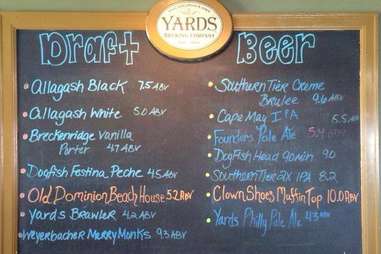 YARDS
BREWING COMPANY
Draft Beer
Allagash Black 7.5 ABV
Allagash White 5.0 ABV
Breckenridge Vanilla
Porter 4.7 ABV
Dogfish Festina Peche 4.5 ABV
Old Dominion Beach House 5.2 ABV
Yards Brawler 4.2 ABV
Weyerbacher Merry Monks 9.3 ABV
Southern Tier Creme
Brulee 9.6 ABV
Cape May IPA 6.5 ABV
Founders Pale Ale
Dogfish Head 90 min 9.0
Southern Tier 2X IPA 8.2
Clown Shoes Muffin Top 10.0 ABV
Yards Philly Pale Ale 4.3 ABV